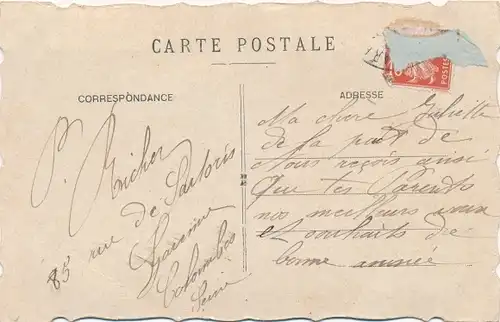 CARTE POSTALE
CORRESPONDANCE
P. Richer
85 rue de Sartoris
Garenne
Colombes
Seine
ADRESSE
Ma chère Juliette
de la part de
Nous reçois ainsi
que tes Parents
nos meilleurs vœux
et souhaits de
bonne année
POSTES